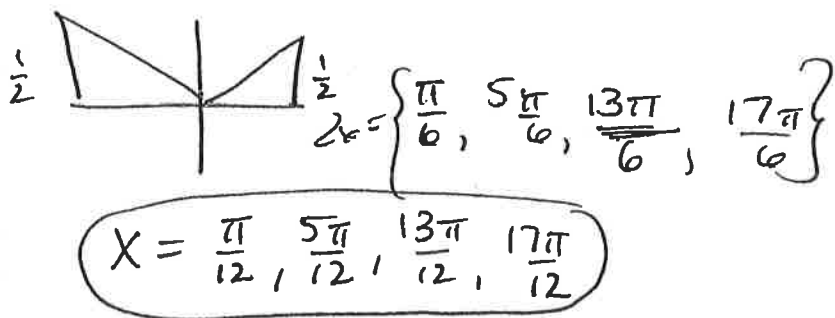 1/2 1/2
2x = {π/6, 5π/6, 13π/6, 17π/6}
X = π/12, 5π/12, 13π/12, 17π/12